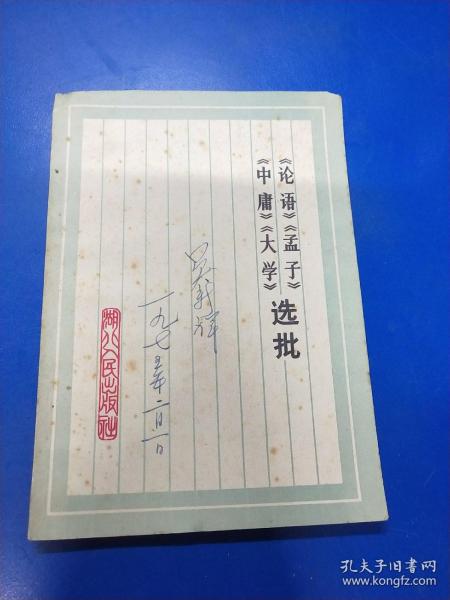 《论语》《孟子》
《中庸》《大学》
选批
一九七五年二月一日
湖北人民出版社
孔夫子旧书网
www.kongfz.com